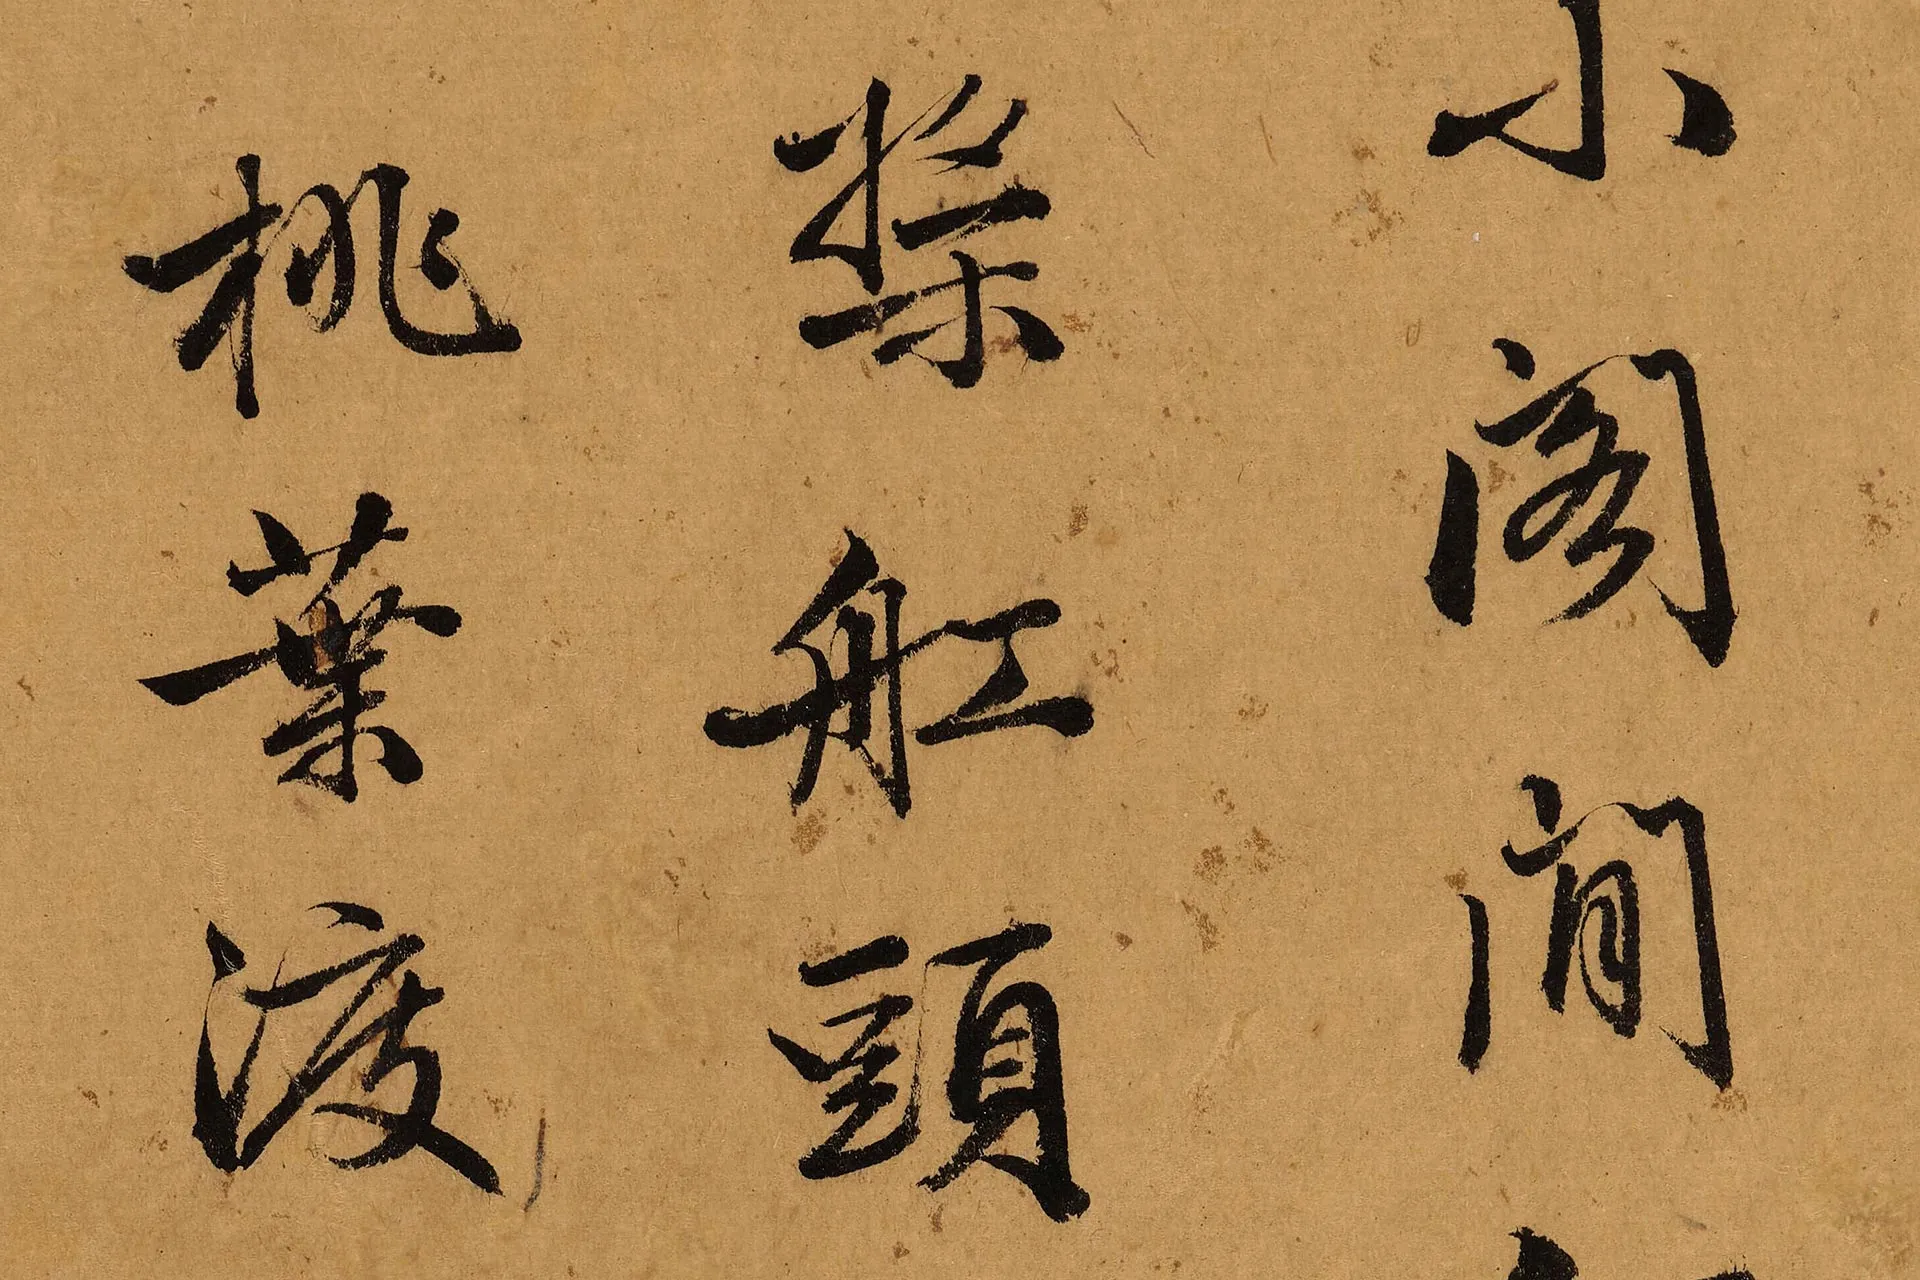 小閣閒
槳舡頭
桃葉渡